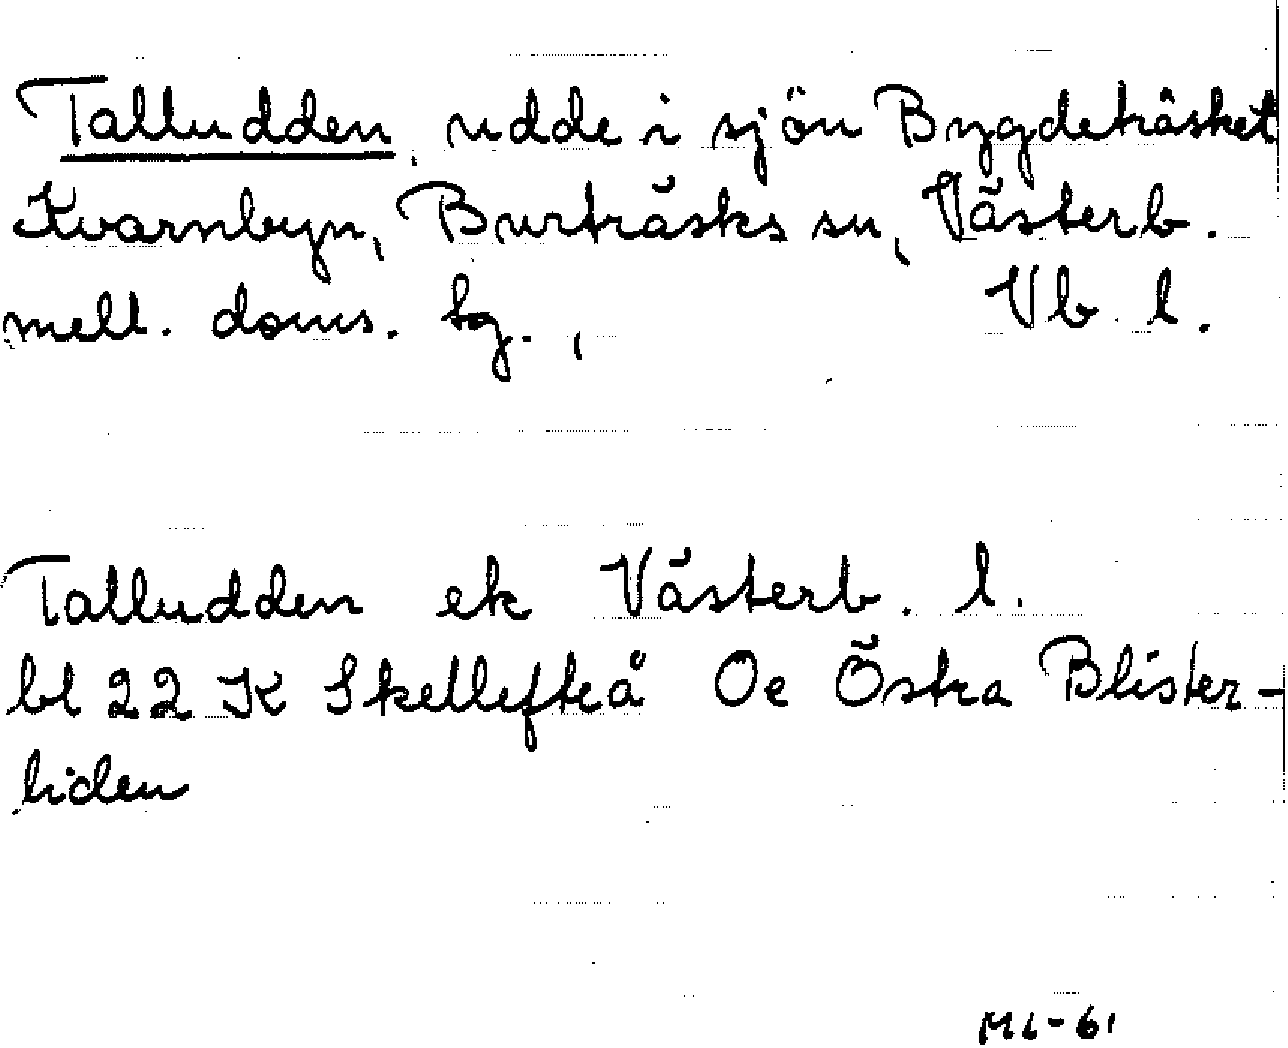 Talludden, udde i sjön Bygdeträsket
Kvarnbyn, Burträsks sn, Västerb.
mell. doms. tg., Vb l.
Talludden ek Västerb. l.
bl 22 K Skellefteå Oe Östra Blister-
liden
ML-61